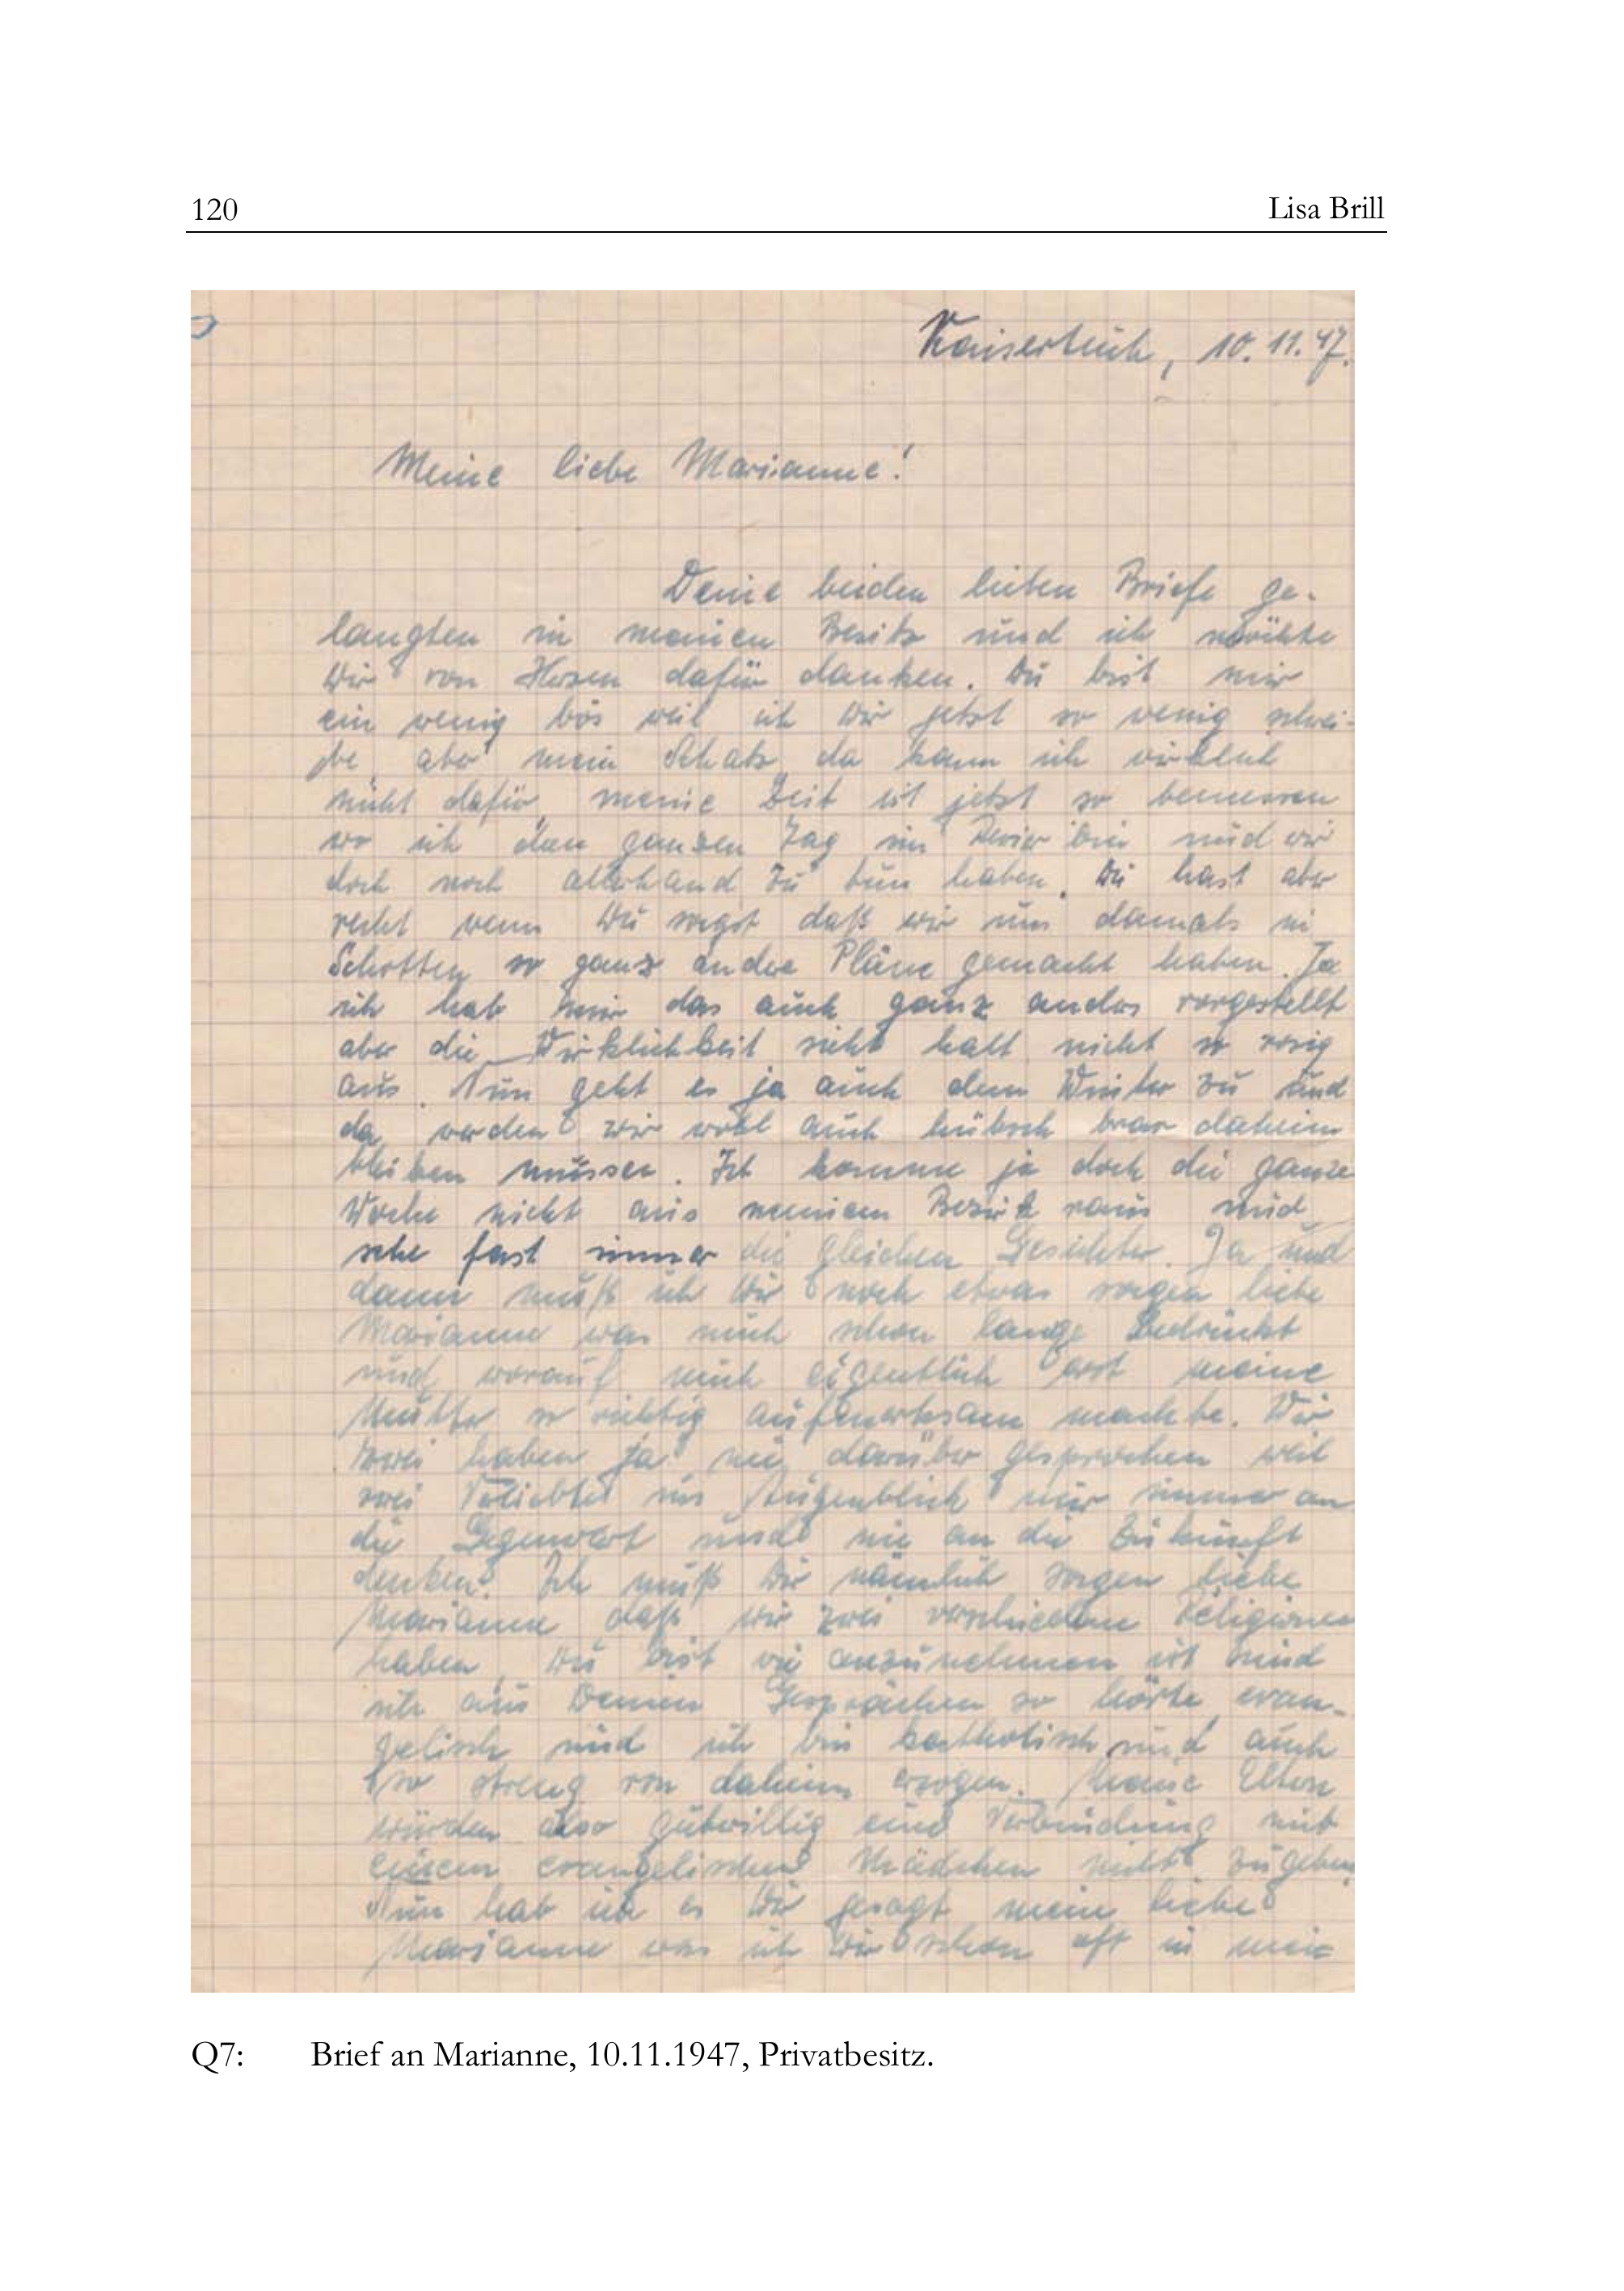 120
Lisa Brill
Kaisertuch, 10.11.47.
Meine liebe Marianne!
Deine beiden lieben Briefe ge-
langten in meinen Besitz und ich möchte
Dir von Herzen dafür danken. Du bist mir
ein wenig bös weil ich Dir jetzt so wenig schrei-
be, aber mein Schatz, da kann ich wirklich
nicht dafür, meine Zeit ist jetzt so bemessen
wo ich den ganzen Tag im Revier bin und wir
doch noch allerhand zu tun haben. Du hast aber
recht wenn Du sagst daß wir uns damals in
Schotten so ganz andre Pläne gemacht haben. Ja
ich hab mir das auch ganz anders vorgestellt
aber die Wirklichkeit sieht halt nicht so rosig
aus. Nun geht es ja auch dem Winter zu und
da werden wir wohl auch hübsch brav daheim
bleiben müssen. Ich komme ja doch die ganze
Woche nicht aus meinem Bezirk raus und
sehe fast immer die gleichen Gesichter. Ja und
dann muß ich Dir noch etwas sagen liebe
Marianne was mich schon lange bedrückt
und worauf mich eigentlich erst meine
Mutter so richtig aufmerksam machte. Wir
zwei haben ja nie darüber gesprochen weil
zwei Verliebte im Augenblick nur immer an
die Gegenwart und nie an die Zukunft
denken. Ich muß Dir nämlich sagen liebe
Marianne daß wir zwei verschiedene Religionen
haben. Du bist wie anzunehmen ist und
ich aus Deinen Gesprächen so hörte evan-
gelisch und ich bin kartholisch und auch
so streng von daheim erzogen. Meine Eltern
würden also gutwillig eine Verbindung mit
einem evangelischen Mädchen nicht zugeben
Nun hab ich es Dir gesagt meine liebe
Marianne was ich Dir schon oft in mein
Q7: Brief an Marianne, 10.11.1947, Privatbesitz.